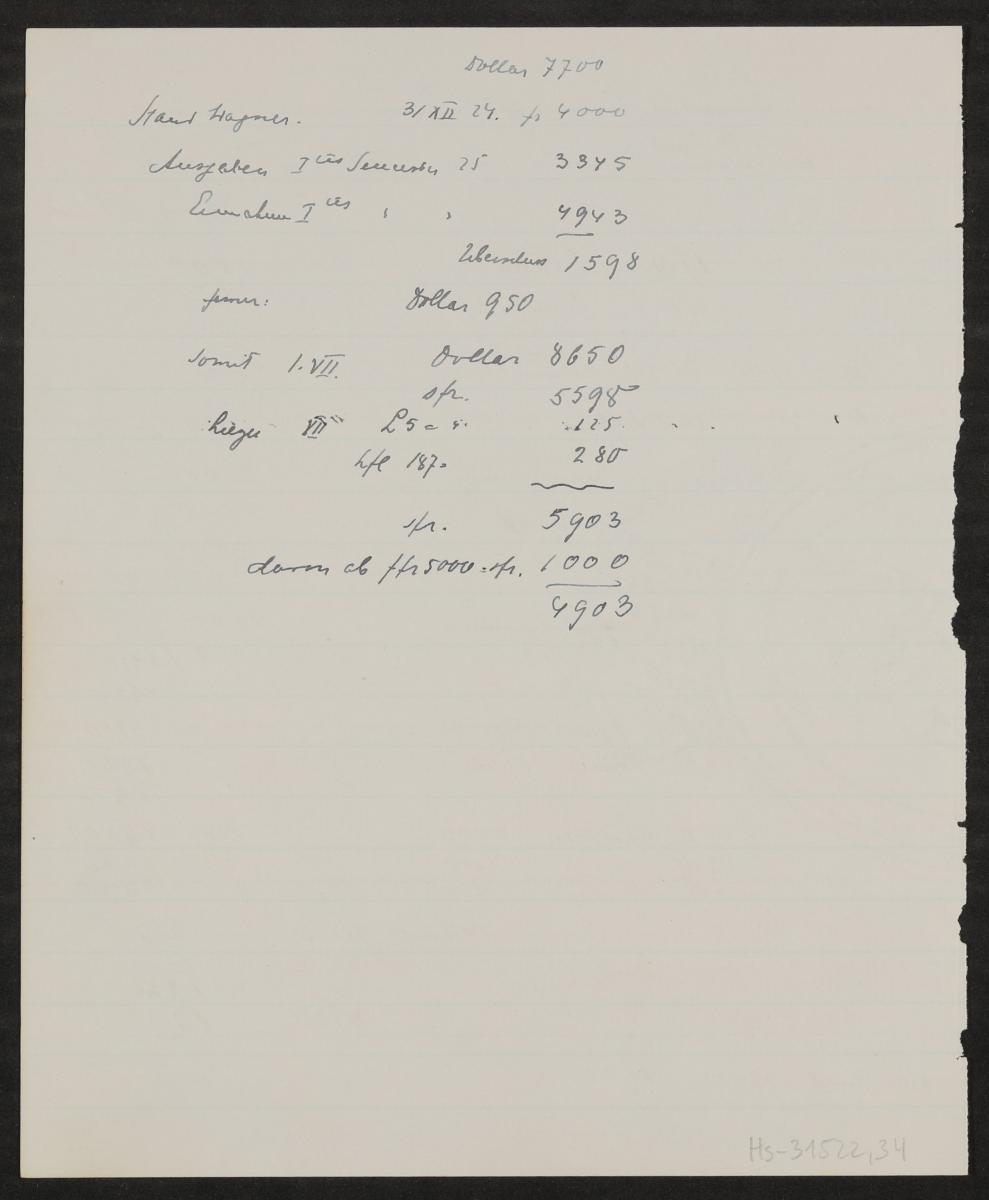 Dollar 7700
Stand Wagner. 31 XII 24. fr 4000
Ausgaben I tes Semester 25 3345
Einnahmen I tes " " 4943
Überschuss 1598
ferner: Dollar 950
somit 1. VII. Dollar 8650
sfr. 5598
VII £ 5 = 125
hfl 187. 280
sfr. 5903
davon ab ffr 5000 = sfr. 1000
4903
Hs-31522,34